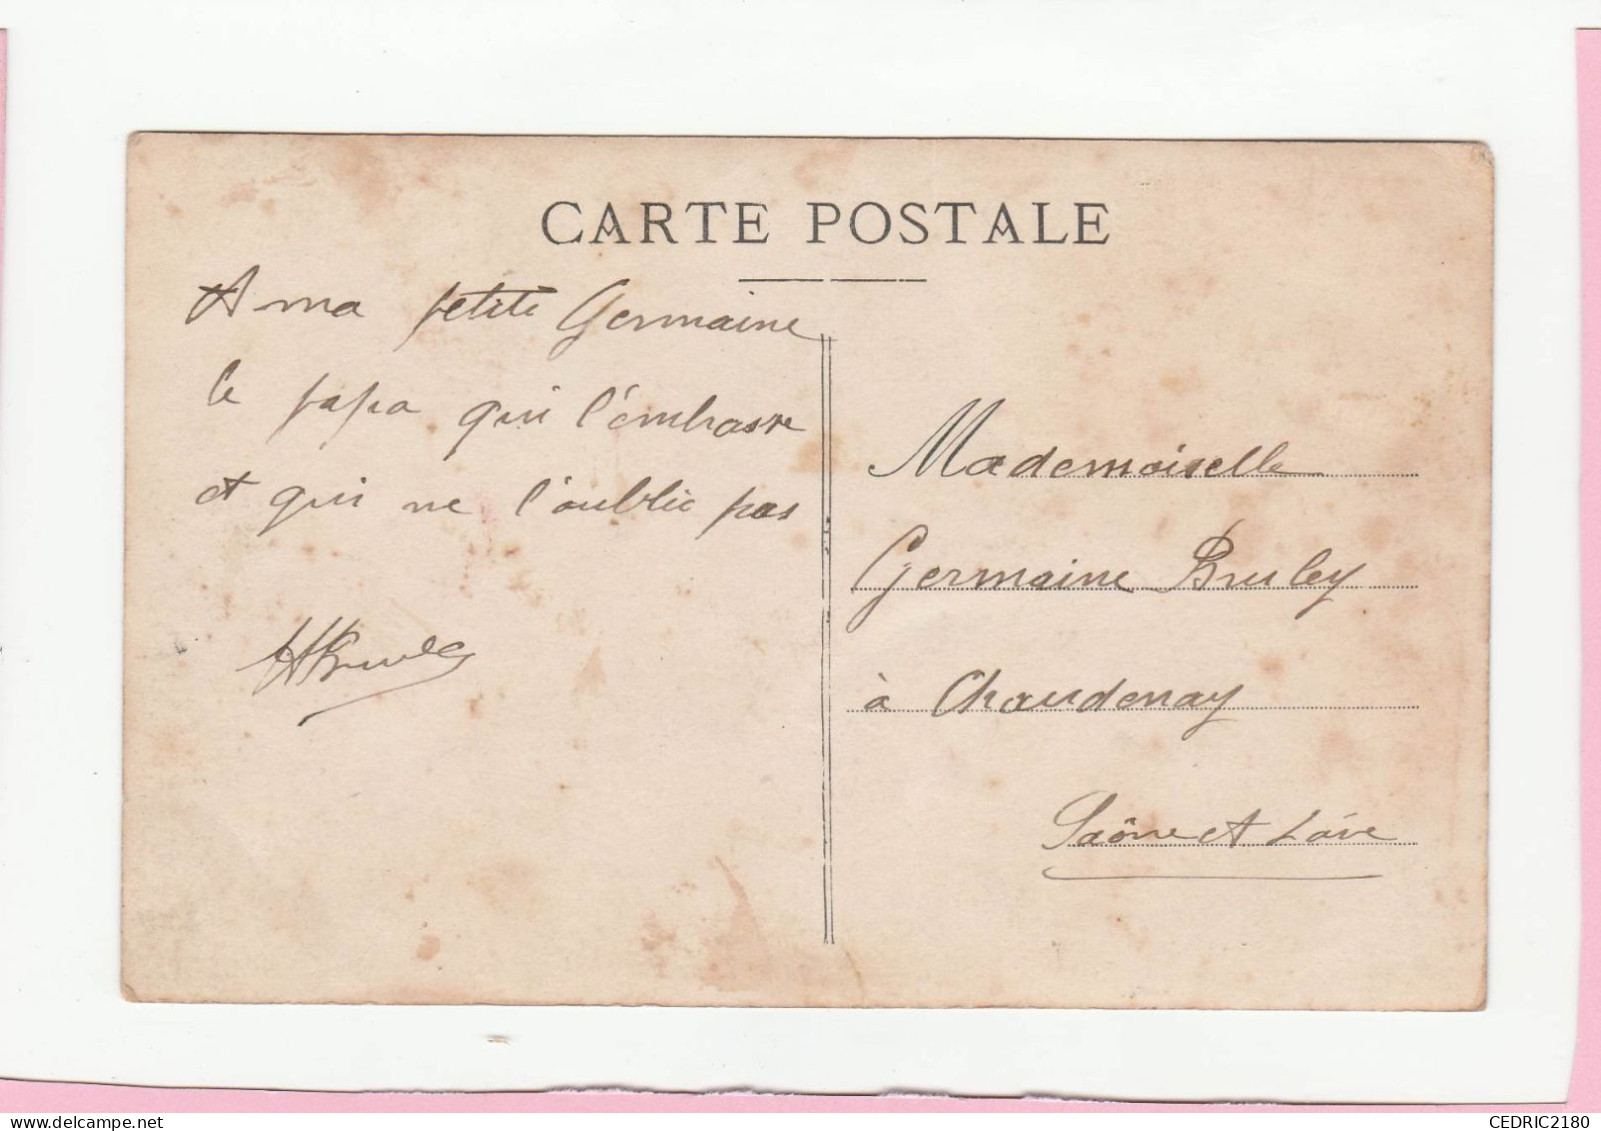 CARTE POSTALE
A ma petite Germaine
le papa qui l'embrasse
et qui ne l'oublie pas
Mademoiselle
Germaine Bruley
à Chaudenay
Saône et Loire
CEDRIC2180